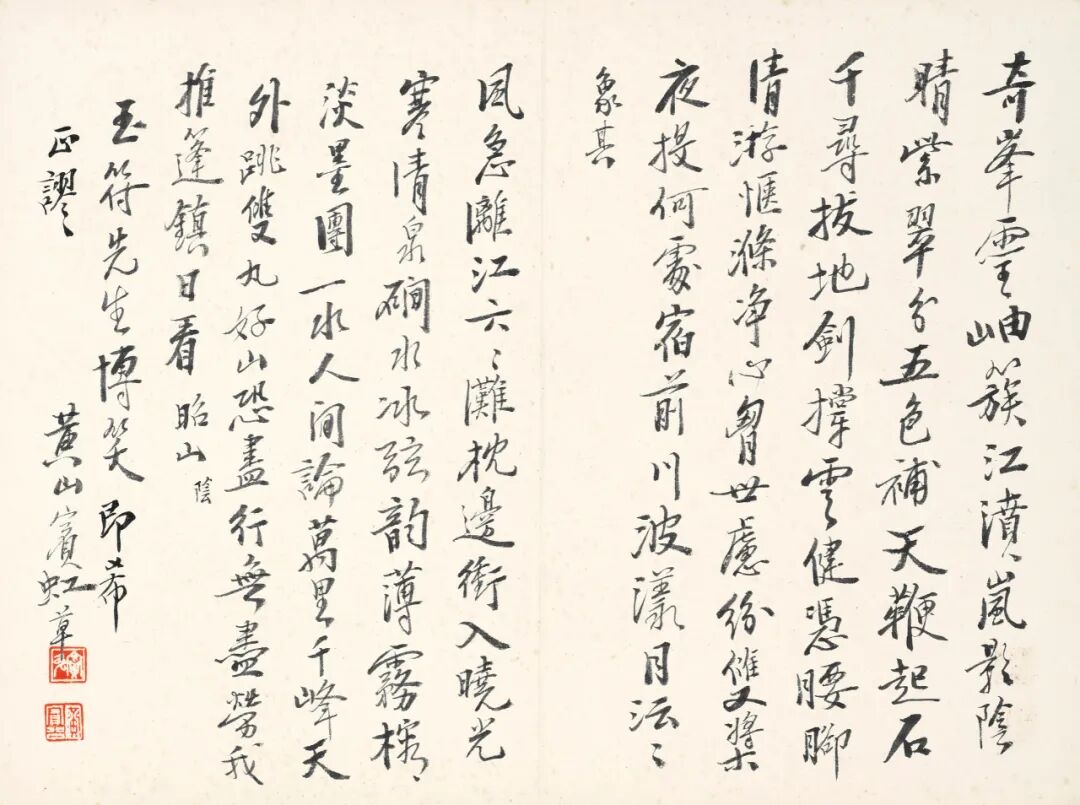 奇峯雲岫簇江濆嵐影陰
晴紫翠分五色補天鞭起石
千尋拔地劍撑雲健憑腰脚
清游愜滌净心胷世慮紛雙槳
夜投何處宿前川波漾月沄〻
象其
風急灕江六〻灘枕邊衝入曉光
寒清泉磵水冰弦韵薄霧
淡墨團一水人間論萬里千峰天
外跳雙丸好山恐盡行無盡勞我
推篷鎮日看 昭山 陰
玉符先生博笑 即希
正謬〻
黃山賓虹草